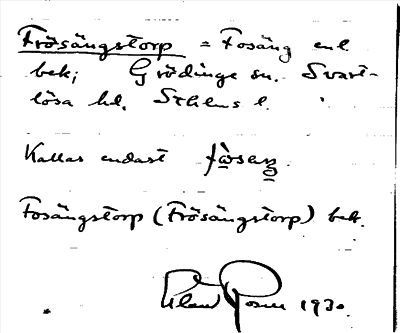 Frösängstorp = Fosäng enl
bek; Grödinge sn. Svart-
lösa hd. Sthlms l.
Kallas endast
Fosängstorp (Frösängstorp) bek.
1930.